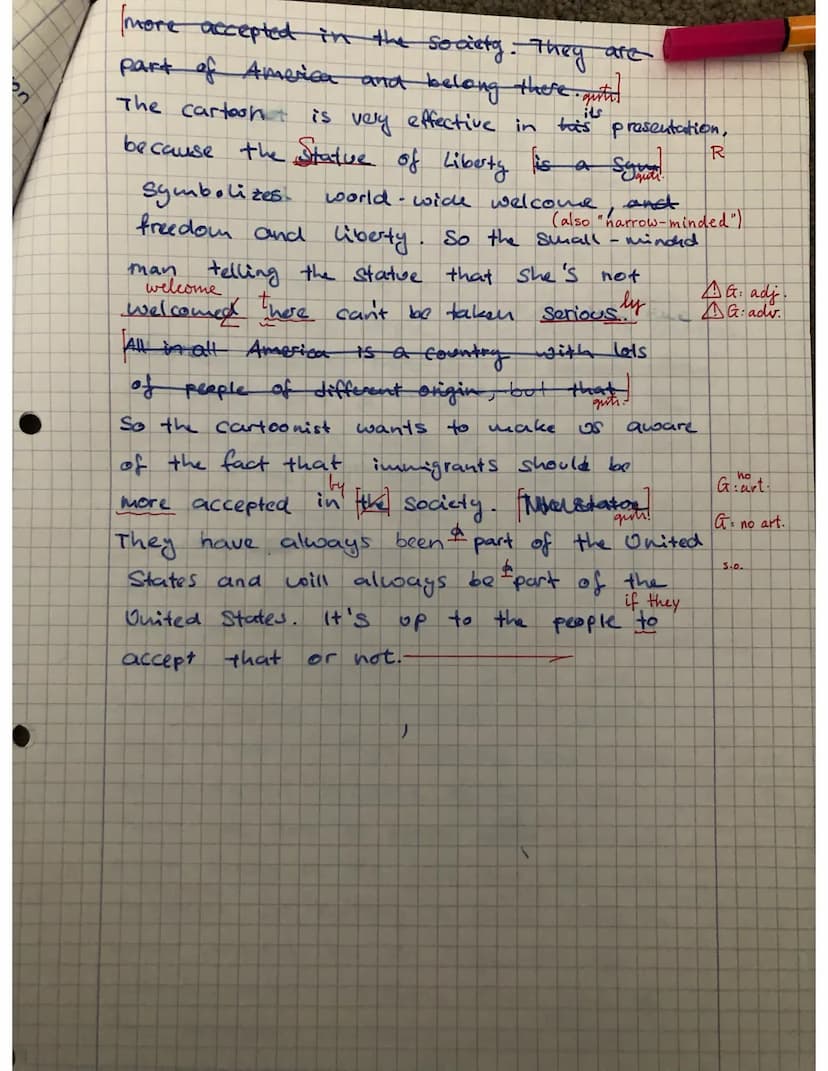 [more accepted in the society. They are
part of America and belong there.]
its
The cartoon is very effective in presentation,
because the Statue of Liberty [is a Sym] R
symbolizes world-wide welcome, and
(also "narrow-minded")
freedom and liberty. So the small-minded
man telling the statue that she's not
welcome
welcomed there can't be taken seriously. G: adj.
G: adv.
[All in all America is a country with lots
of people of different origin, but that]
So the cartoonist wants to make us aware
of the fact that immigrants should be
by G: no art.
more accepted in [the] society.
G: no art.
They have always been part of the United
s.o.
States and will always be part of the
if they
United States. It's up to the people to
accept that or not.